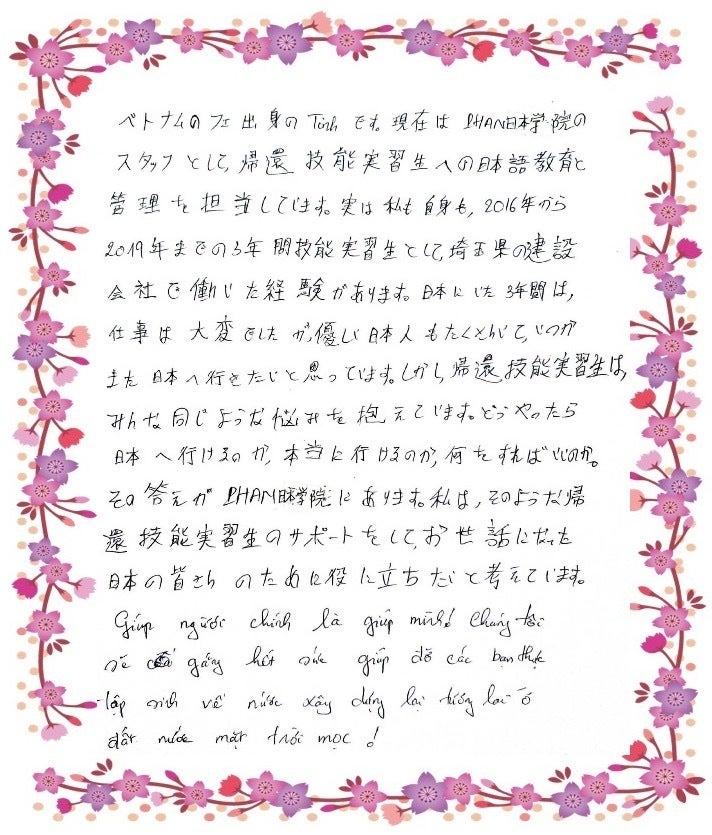 ベトナムのフエ出身の Tinh です。現在は PHAN日本学院の
スタッフとして、帰還技能実習生への日本語教育と
管理を担当しています。実は私も自身も、2016年から
2019年までの3年間技能実習生として、埼玉県の建設
会社で働いた経験があります。日本にいた3年間は、
仕事は大変でしたが、優しい日本人もたくさんいて、いつか
また日本へ行きたいと思っています。しかし、帰還技能実習生は、
みんな同じような悩みを抱えています。どうやったら
日本へ行けるのか、本当に行けるのか、何をすればいいのか。
その答えが PHAN日本学院にあります。私は、そのような帰
還技能実習生のサポートをして、お世話になった
日本の皆さんのために役に立ちたいと考えています。
Giúp người chính là giúp mình! Chúng tôi
sẽ cố gắng hết sức giúp đỡ các bạn thực
tập sinh về nước xây dựng lại tương lai ở
đất nước mặt trời mọc !